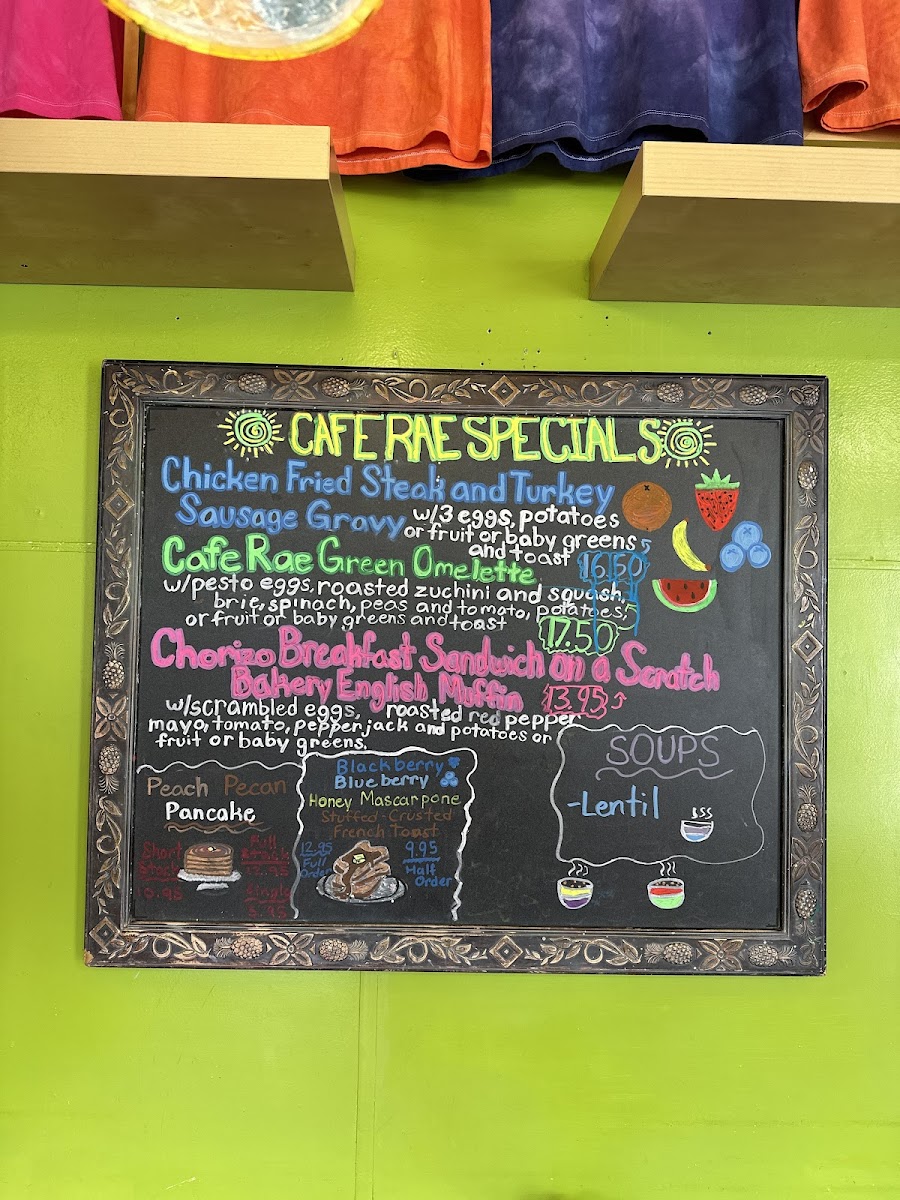 CAFE RAE SPECIALS
Chicken Fried Steak and Turkey
Sausage Gravy w/3 eggs, potatoes
or fruit or baby greens
and toast 16.50
Cafe Rae Green Omelette
w/pesto eggs, roasted zuchini and squash,
brie, spinach, peas and tomato, potatoes,
or fruit or baby greens and toast
17.50
Chorizo Breakfast Sandwich on a Scratch
Bakery English Muffin 13.95
w/scrambled eggs, roasted red pepper
mayo, tomato, pepperjack and potatoes or
fruit or baby greens.
Peach Pecan
Pancake
Short
Stack
Full
Stack
Single
Blackberry
Blueberry
Honey Mascarpone
Stuffed-Crusted
French Toast
12.95
Full
Order
9.95
Half
Order
SOUPS
-Lentil